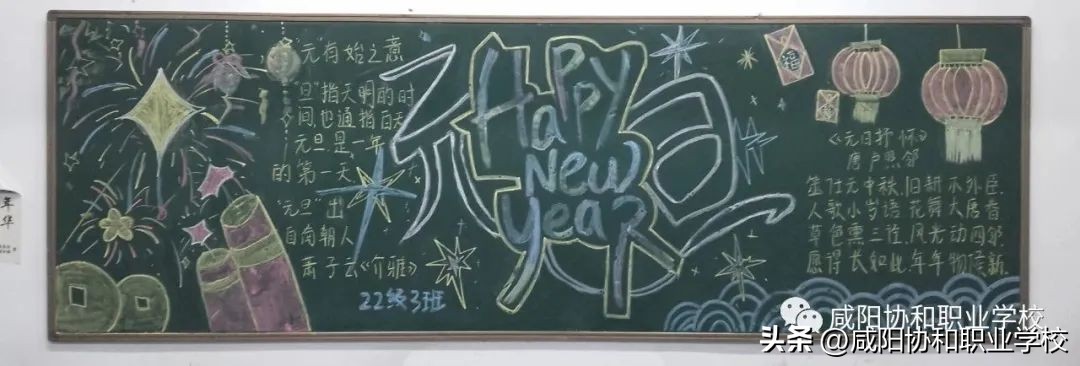 年
华
"元"有始之意
"旦"指天明的时
间也通指白天
元旦是一年
的第一天
"元旦"出
自南朝人
萧子云《介雅》
22级3班
元旦
Happy
New
Year
福
《元日抒怀》
唐卢照邻
筮仕元中秋,旧耕不外臣.
人歌小岁语,花舞大唐春
草色熏三径,风光动四邻
愿得长如此,年年物候新.
咸阳协和职业学校
头条@咸阳协和职业学校